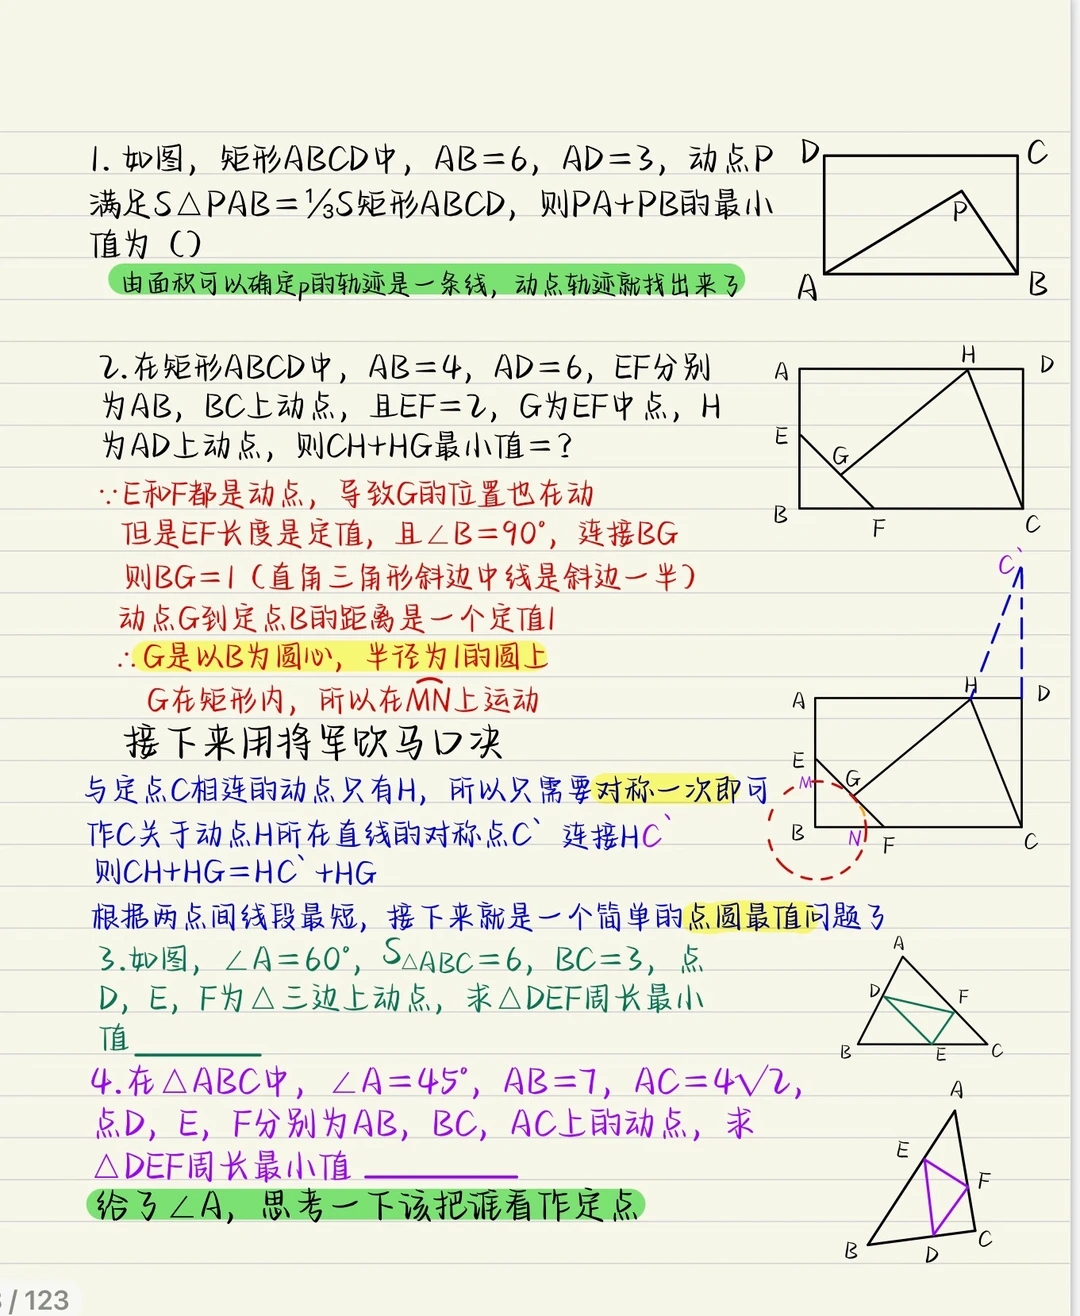 1.如图，矩形ABCD中，AB=6，AD=3，动点P
满足S△PAB=⅓S矩形ABCD，则PA+PB的最小
值为（）
由面积可以确定p的轨迹是一条线，动点轨迹就找出来了
D
C
P
A
B
2.在矩形ABCD中，AB=4，AD=6，EF分别
为AB，BC上动点，且EF=2，G为EF中点，H
为AD上动点，则CH+HG最小值=?
A
H
D
E
G
B
F
C
∵E和F都是动点，导致G的位置也在动
但是EF长度是定值，且∠B=90°，连接BG
则BG=1（直角三角形斜边中线是斜边一半）
动点G到定点B的距离是一个定值1
∴G是以B为圆心，半径为1的圆上
G在矩形内，所以在MN上运动
接下来用将军饮马口决
与定点C相连的动点只有H，所以只需要对称一次即可
作C关于动点H所在直线的对称点C` 连接HC`
则CH+HG=HC`+HG
根据两点间线段最短，接下来就是一个简单的点圆最值问题了
C`
A
H
D
E
M
G
B
N
F
C
3.如图，∠A=60°，S△ABC=6，BC=3，点
D，E，F为△三边上动点，求△DEF周长最小
值
A
D
F
B
E
C
4.在△ABC中，∠A=45°，AB=7，AC=4√2，
点D，E，F分别为AB，BC，AC上的动点，求
△DEF周长最小值
给了∠A，思考一下该把谁看作定点
A
E
F
B
D
C
/ 123